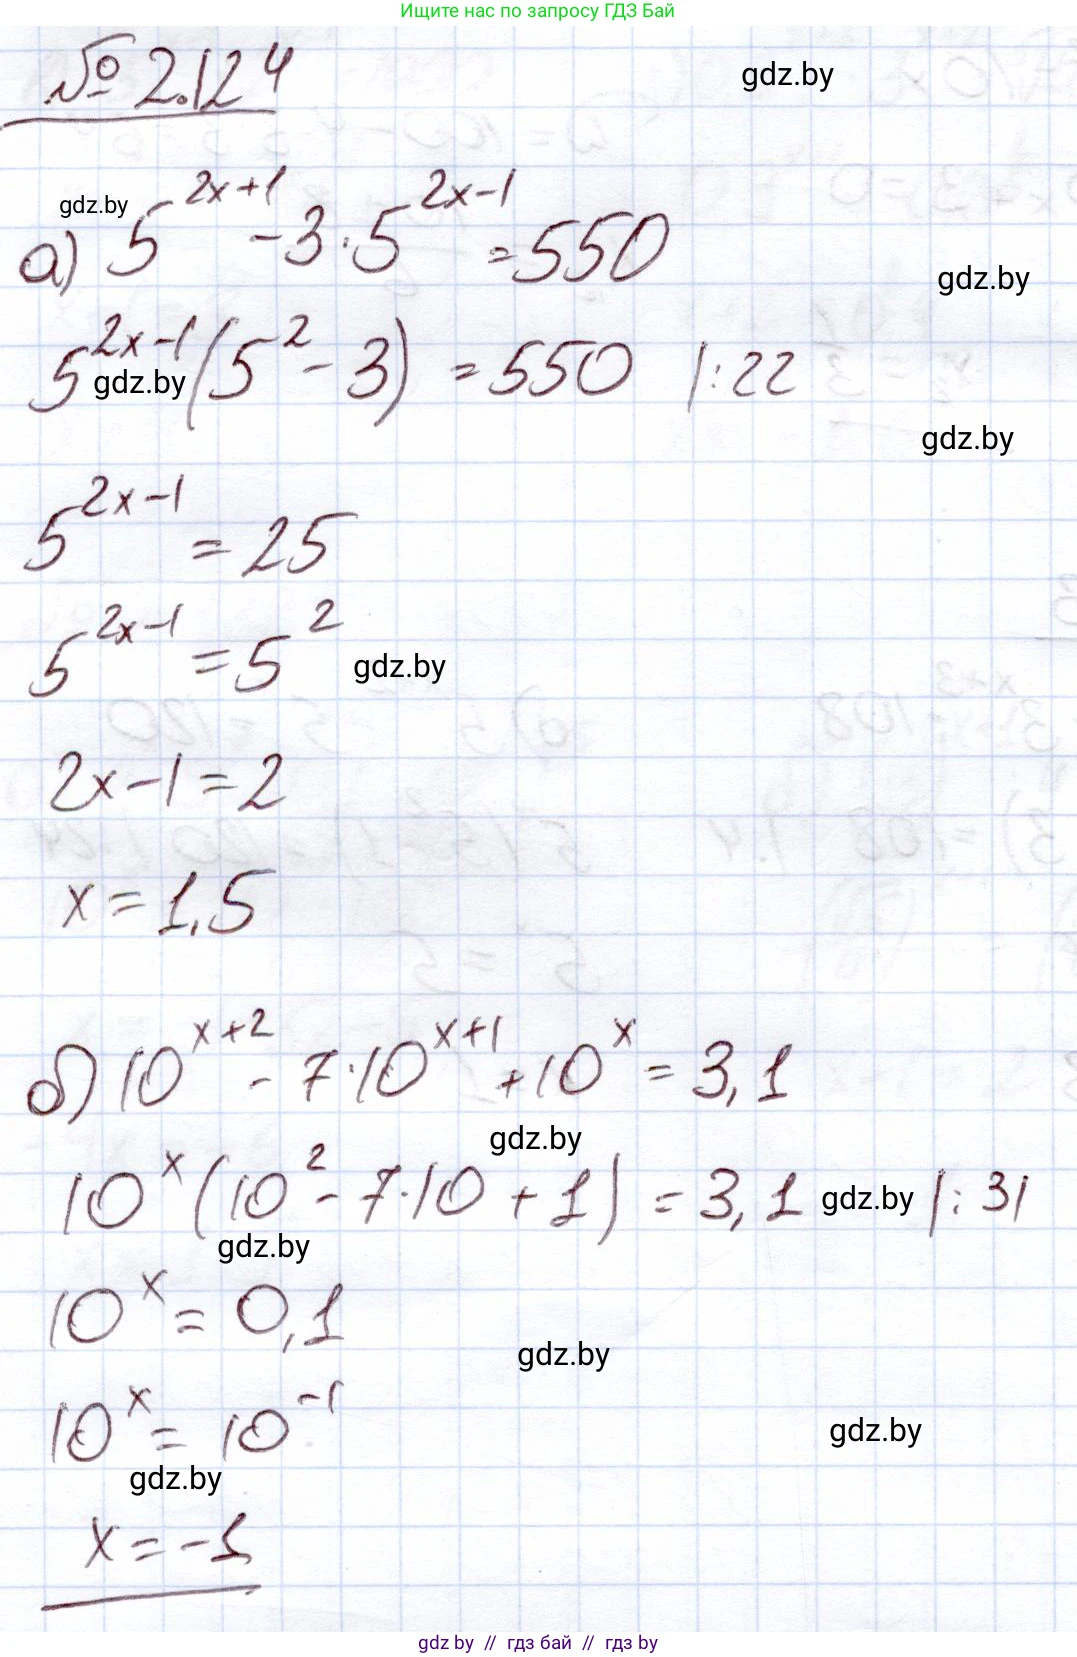 Ищите нас по запросу ГДЗ Бай
№ 2.124
gdz.by
gdz.by
а) 5^(2x+1) - 3·5^(2x-1) = 550
gdz.by
5^(2x-1) (5^2 - 3) = 550 |:22
gdz.by
gdz.by
5^(2x-1) = 25
5^(2x-1) = 5^2
gdz.by
2x-1=2
x=1,5
б) 10^(x+2) - 7·10^(x+1) + 10^x = 3,1
gdz.by
10^x (10^2 - 7·10 + 1) = 3,1 |:31
gdz.by
gdz.by
10^x = 0,1
gdz.by
10^x = 10^(-1)
gdz.by
gdz.by
x = -1
gdz by // гдз бай // гдз by